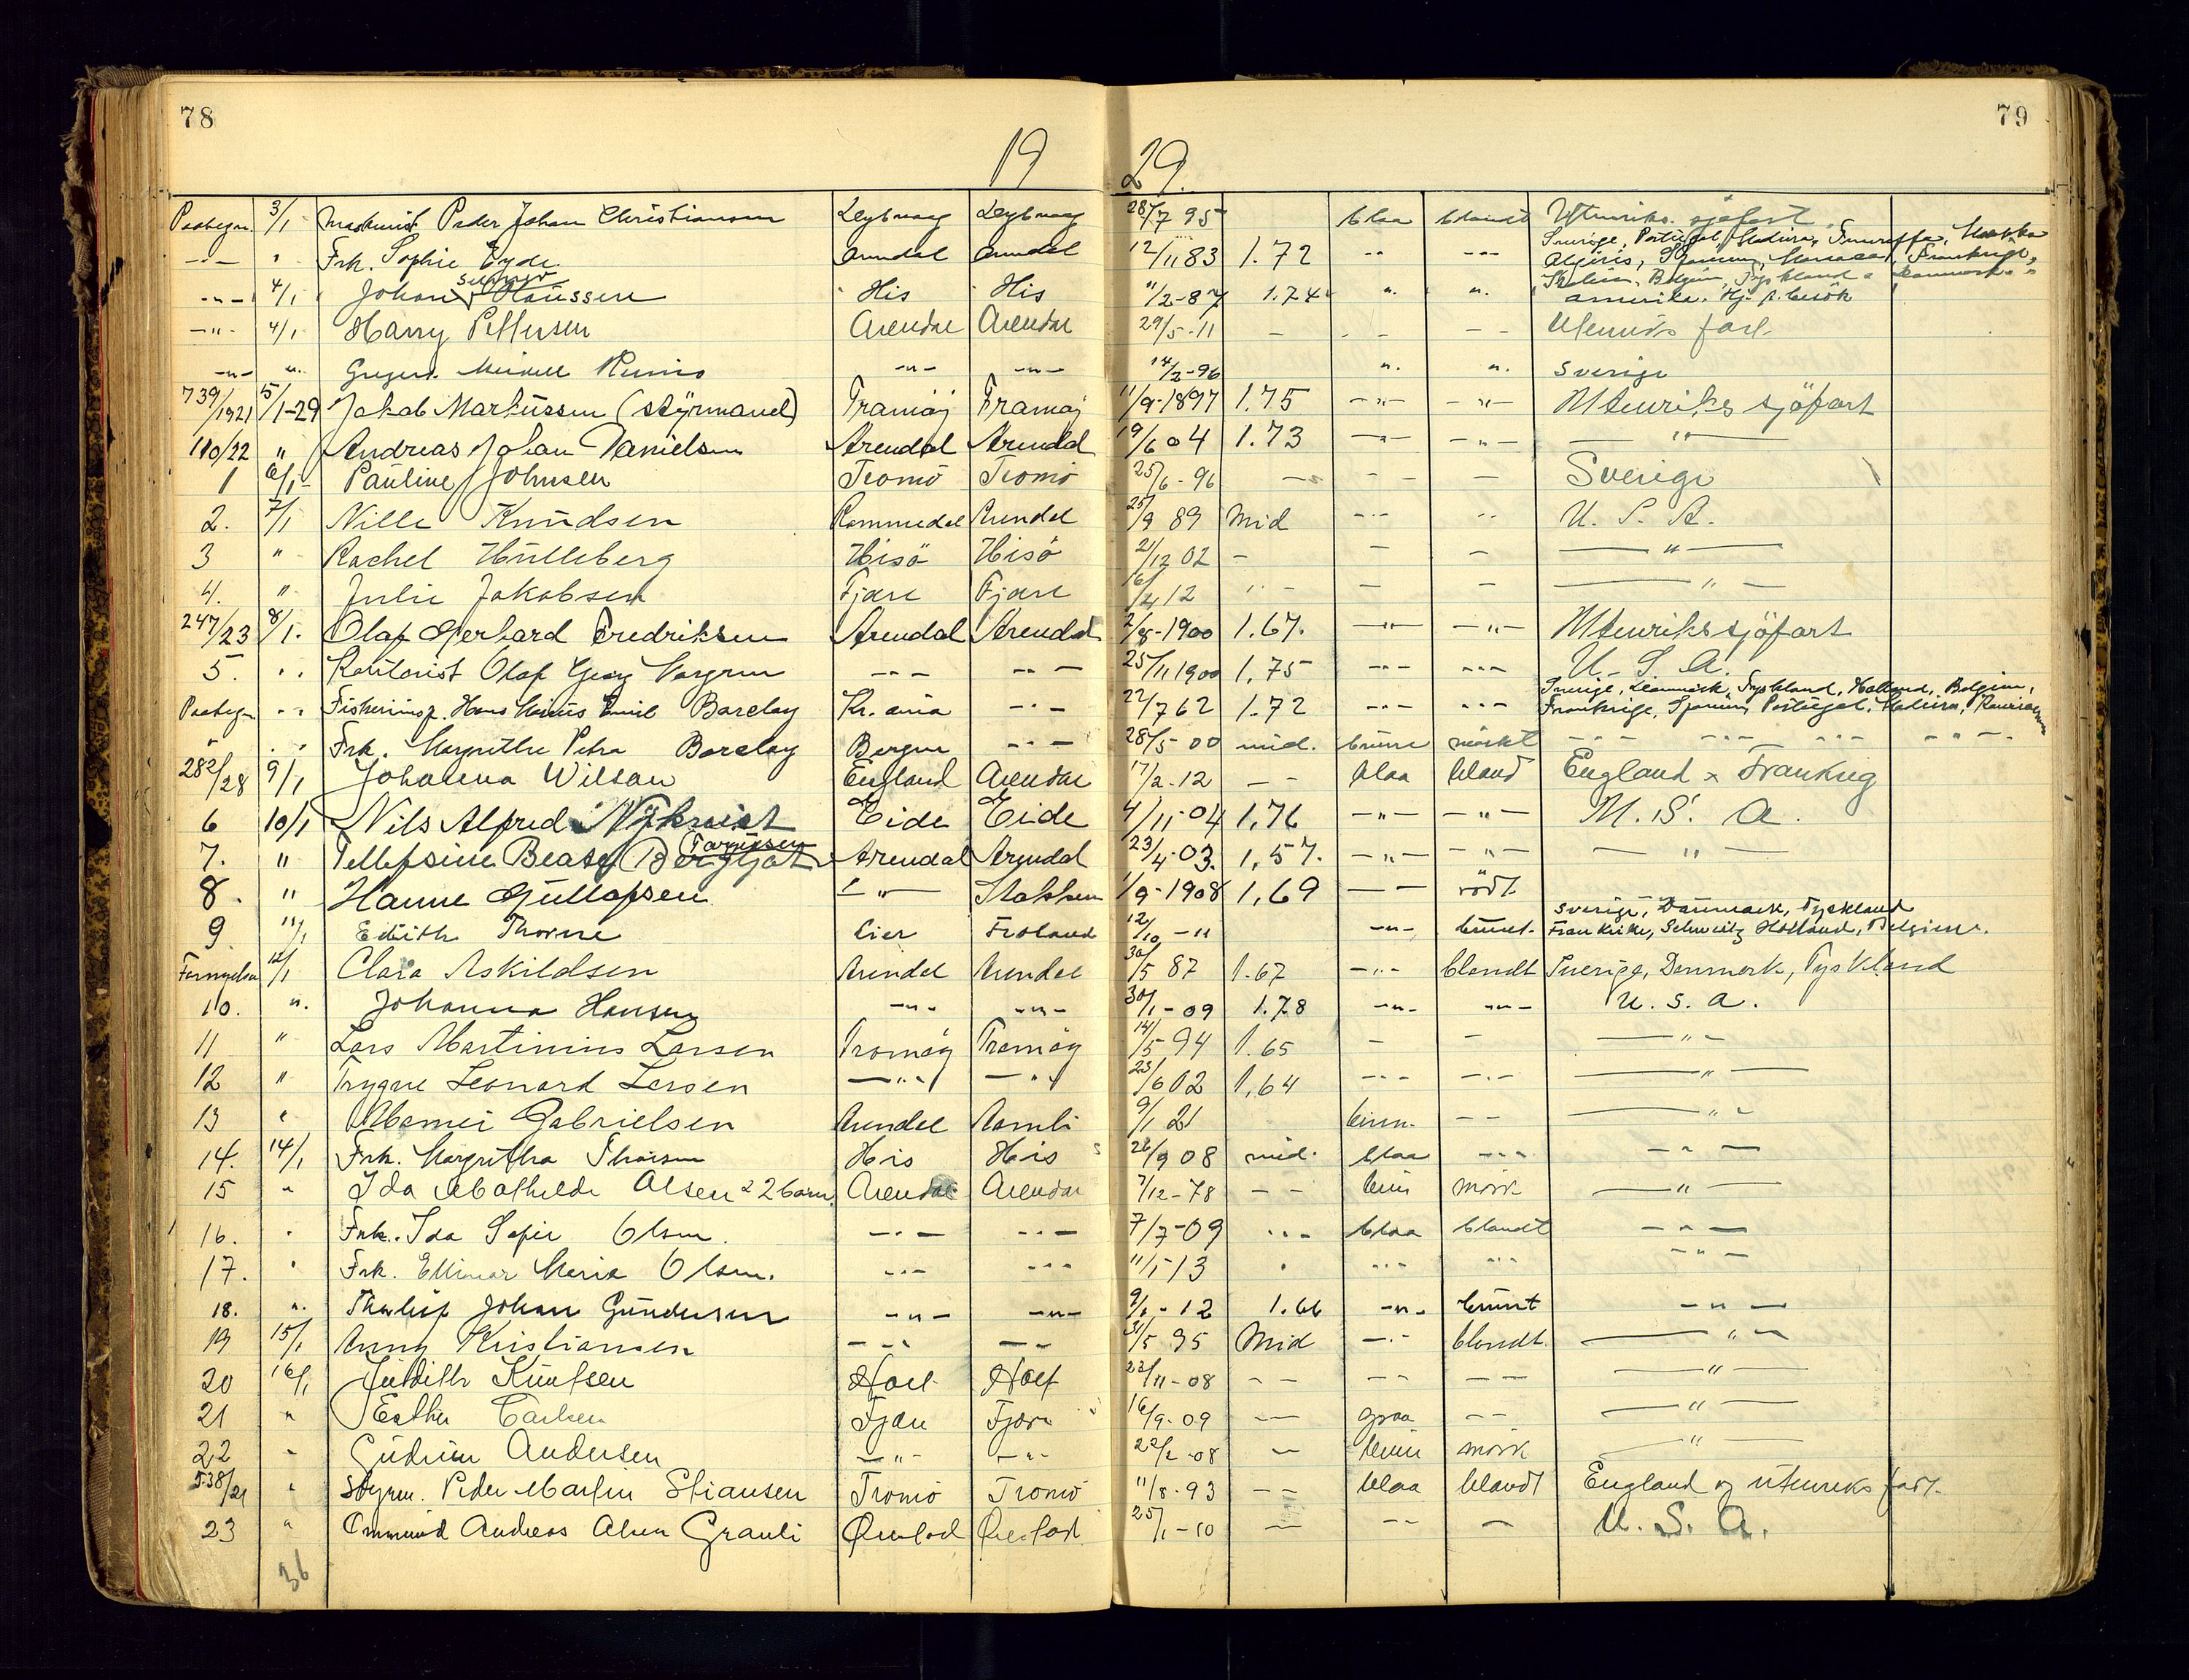 78
79
19 29.
Paategn. 3/1 Maskinist Peder Johan Christiansen 28/7 95 blaa blandt Utenriks sjøfart
Frk. Sophie Eyde Arendal Arendal 12/11 83 1.72 Sverige, Portugal, Madeira,
Algiris, Frankrige,
4/1 Johan Hanssen His His 11/2-87 1.74 Belgien, Tyskland Danmark
Amerika. Hj. p. besök
4/1 Harry Pettersen Arendal Arendal 29/5-11 - - - Utenriks fart
-"- ". -"- -"- 14/2-96 ". ". Sverige
739/1921 5/1-29 Jakob Markussen (styrmand) Tromøy Tromøy 11/9-1897 1.75 -"- -"- Utenriks sjöfart
110/22 " Andreas Johan Danielsen Arendal Arendal 19/6 04 1.73 -"- -"- -"-
1 6/1- Pauline Johnsen Tromö Tromö 25/6-96 - - - Sverige
2. 7/1 Nille Knudsen Arendal 25/9 89 Mid -"- " U. S. A.
3 " Rachel Hülleberg Hisö Hisö 21/12 02 - - - -"-
4. " Julie Jakobsen Fjære Fjære 16/4 12 " - - - -"-
247/23 8/1. Olaf Gerhard Fredriksen Arendal Arendal 2/8-1900 1.67. -"- -"- Utenriks sjöfart
5. " Kontorist Olaf Georg -"- -"- 25/11 1900 1.75 -"- -"- U. S. A.
Paategn -"- Hans Emil Barclay Kr.ania -"- 22/7 62 1.72 -"- -"- Sverige, Danmark, Tyskland, Holland, Belgien,
Frankrige, Spanien, Portugal, Madeira,
" " Frk. Margrethe Petra Barclay Bergen -"- 28/5-00 mid. brune mörkt -"- -"- -"- -"-
282/28 9/1 Johanna Wilson England Arendal 17/2-12 - - blaa bland England & Frankrig
6 10/1 Nils Alfred Nykvist Eide Eide 4/11-04 1,76 -"- -"- U. S. A.
7. " Tellefsine Beate Bergljot Arendal Arendal 23/4-03. 1,57. -"- -"- -"-
8. " Hanne Gullofsen -"- Stokken 1/9-1908 1,69 - - rödt
9. 11/1 Edith Thorne Lier Froland 12/10-11 -"- brunt. Sverige, Danmark, Tyskland
Frankrike, Schweitz Holland, Belgien.
Fornyelse 12/1 Clara Askildsen Arendal Arendal 30/5 87 1.67 -"- blondt Sverige, Danmark, Tyskland
10. ". Johanna Hansen -"- -"- 30/1-09 1.78 -"- -"- U. S. A.
11 " Lars Martinius Larsen Tromöy Tromöy 14/5-94 1.65 - - -"-
12 " Trygve Leonard Larsen -"- -"- 23/6 02 1,64 -"- -"- -"-
13 " Gabrielsen Arendal Aamli 9/1 21 brun. - - -"-
14. 14/1 Frk. Margretha His His 26/9 08 mid. blaa -"- -"-
15 " Ida Mathilde Olsen & 2 barn Arendal Arendal 7/12-78 - - brun mörk -"-
16. " Frk. Ida Sofie Olsen. -"- -"- 7/7-09 -"- blaa blandt -"-
17. " Frk. Ellinor Marie Olsen. -"- -"- 11/5 13 " -"- -"- -"-
18. ". Thorleif Johan Gundersen -"- -"- 9/1-12 1.66 -"- brunt -"-
19 15/1 Anny Kristiansen -"- -"- 31/5 95 Mid -"- blondt. -"-
20 16/1 Judith Knutsen Holt Holt 23/11-08 - - - - - - -"-
21 " Esther Carlsen Fjære Fjære 16/9-09 - - graa - - -"-
22 " Gudrun Andersen -"- -"- 22/2-08 - brun mörk -"-
538/21 " Styrm. Peder Martin Stiansen Tromö Tromö 11/8-93 - - blaa blandt England og utenriks fart.
23 " Ommund Andreas Olsen Grauli Øiestad Øiestad 25/1-10 - - - - U. S. A.
36